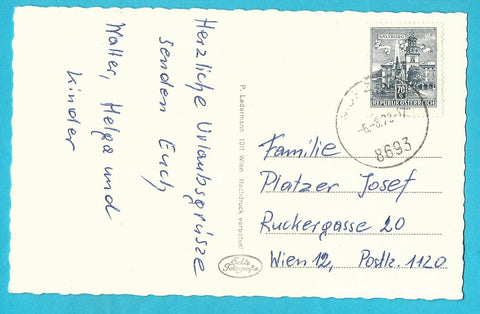 Herzliche Urlaubsgrüsze
senden Euch
Walter, Helga und
Kinder
P. Ledermann 1011 Wien Nachdruck verboten!
Echte
Fotografie
SALZBURG
70
REPUBLIK ÖSTERREICH
8693
Familie
Platzer Josef
Ruckergasse 20
Wien 12, Postlz. 1120